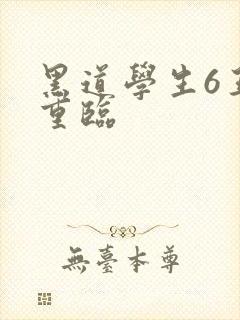 黑道學生6王
重臨
無臺本尊